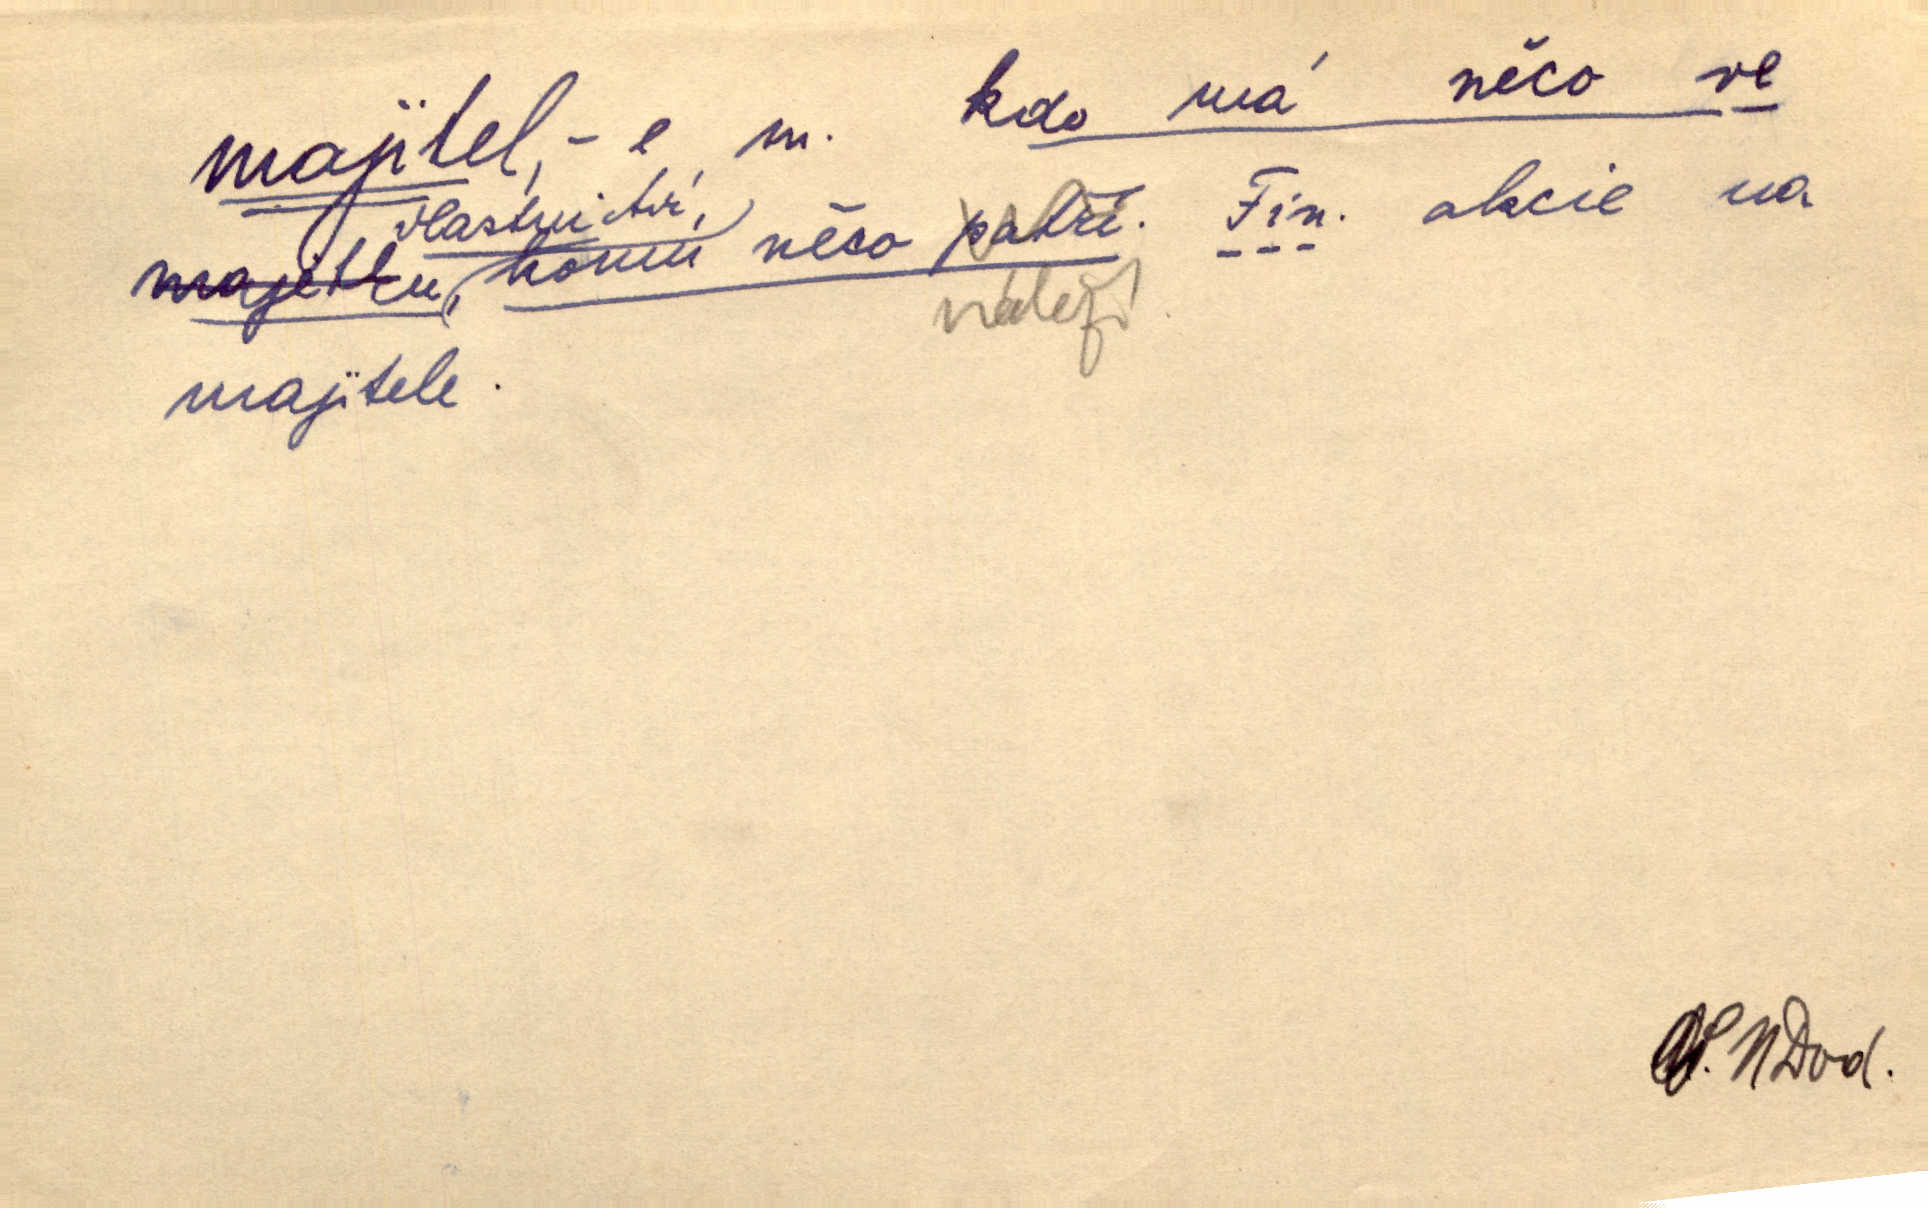 majitel, -e m. kdo má něco ve
vlastnictví,
majetku, komu něco patří. Fin. akcie na
náleží
majitele.
NDod.